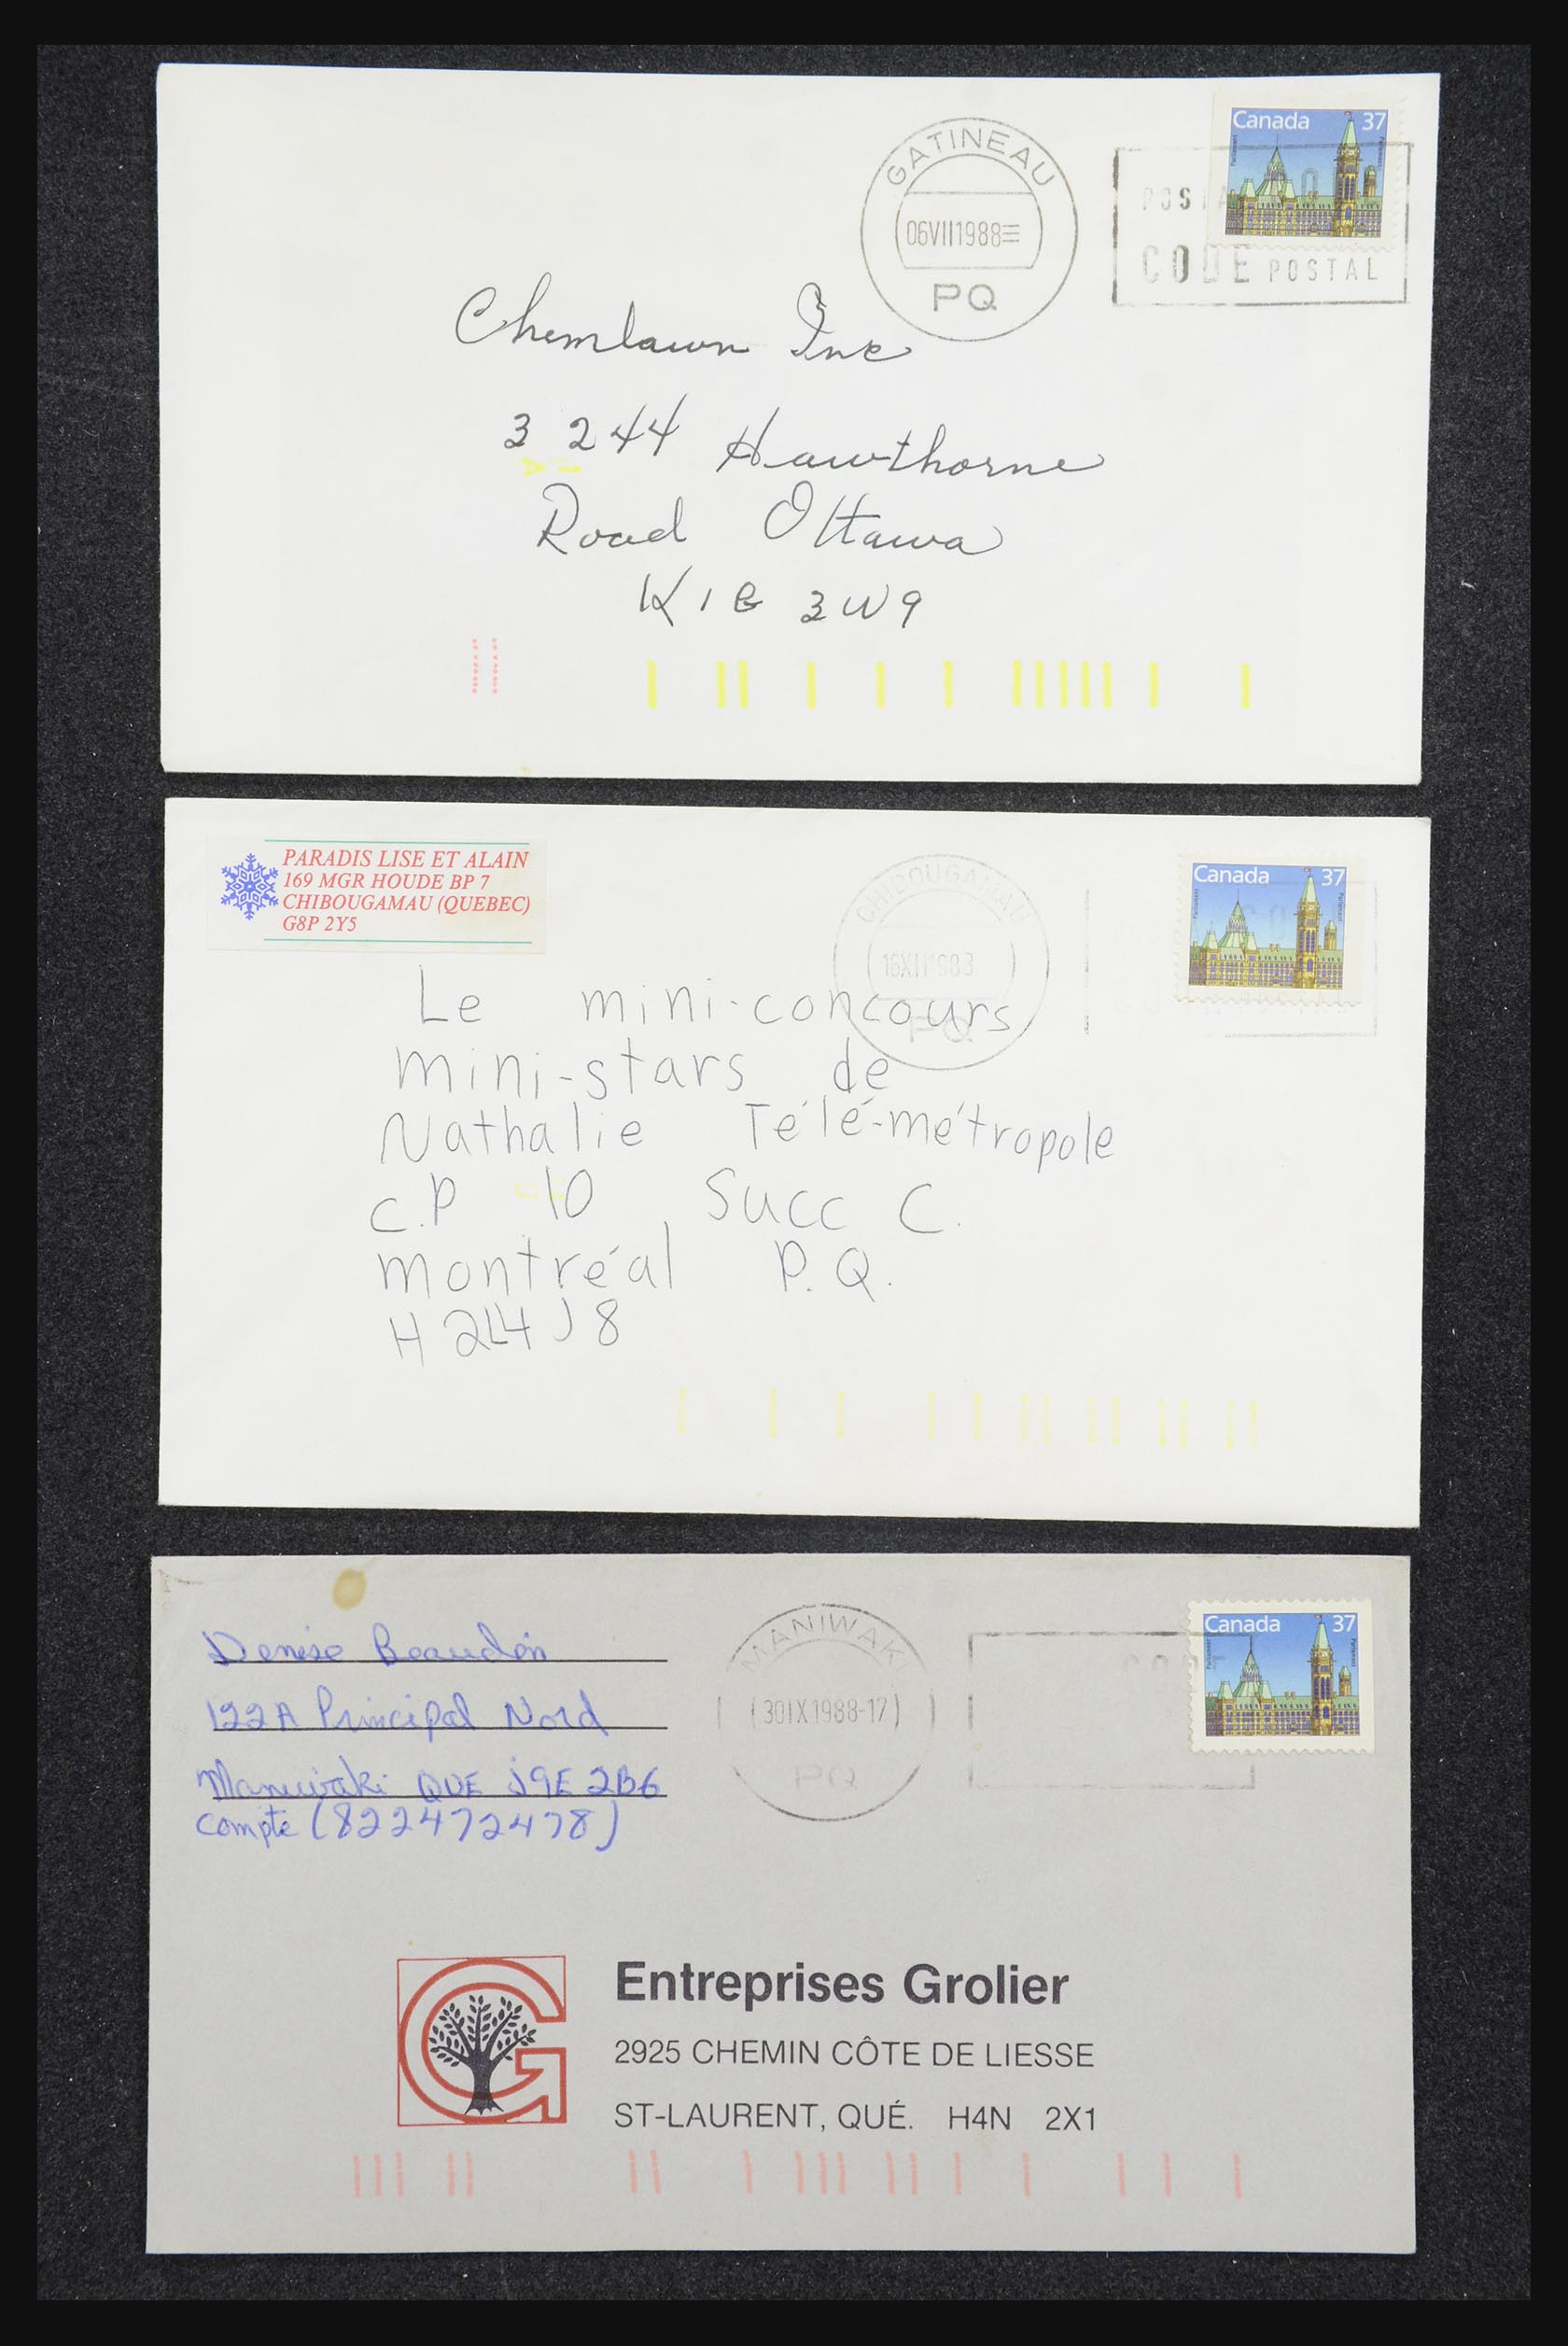 Canada 37
GATINEAU
06VII1988
PQ
CODE POSTAL
Chemlawn Inc
3244 Hawthorne
Road Ottawa
K1G 3W9
PARADIS LISE ET ALAIN
169 MGR HOUDE BP 7
CHIBOUGAMAU (QUEBEC)
G8P 2Y5
Canada 37
CHIBOUGAMAU
PQ
Le mini-concours
mini-stars de
Nathalie Télé-métropole
C.P 10 Succ C.
Montréal P.Q.
H2L4J8
Denise Beaudoin
122A Principal Nord
Maniwaki QUE J9E 2B6
compte (822472478)
MANIWAKI
30IX1988-17
PQ
Canada 37
Entreprises Grolier
2925 CHEMIN CÔTE DE LIESSE
ST-LAURENT, QUÉ. H4N 2X1